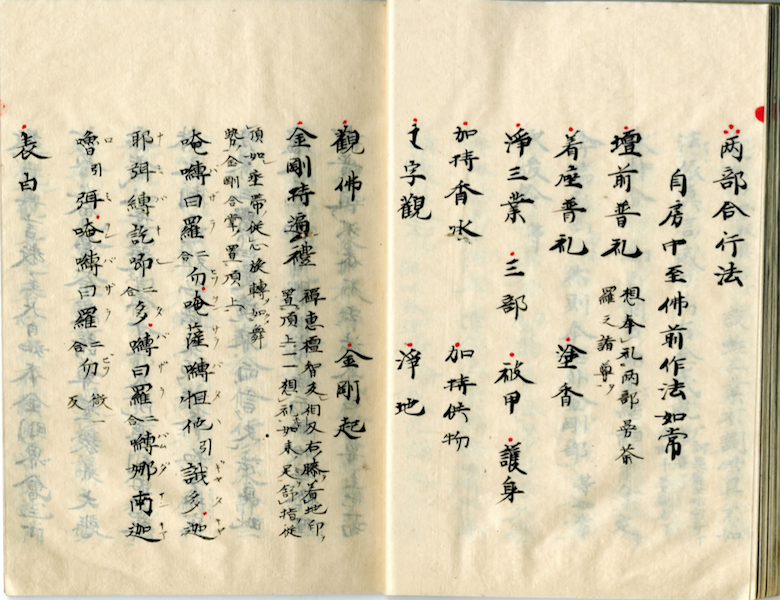 两部合行法
自房中至佛前作法如常
壇前普礼 想奉礼两部
羅之諸尊
着座普礼 塗香
淨三業 三部 被甲 護身
加持香水 加持供物
字觀 淨地
觀佛 金剛起
金剛持遍禮 禪惠檀智反相叉右膝着地印
置頂上一一想礼如来足舒指從
頂如垂帶從心旋轉如舞
勢金剛合掌置頂上
唵嚩日羅二合勿唵薩嚩怛他引誐多迦
耶弭嚩訖二合多嚩日羅二合嚩娜南迦
嚕引弭唵嚩日羅二合勿 微一
反
表白